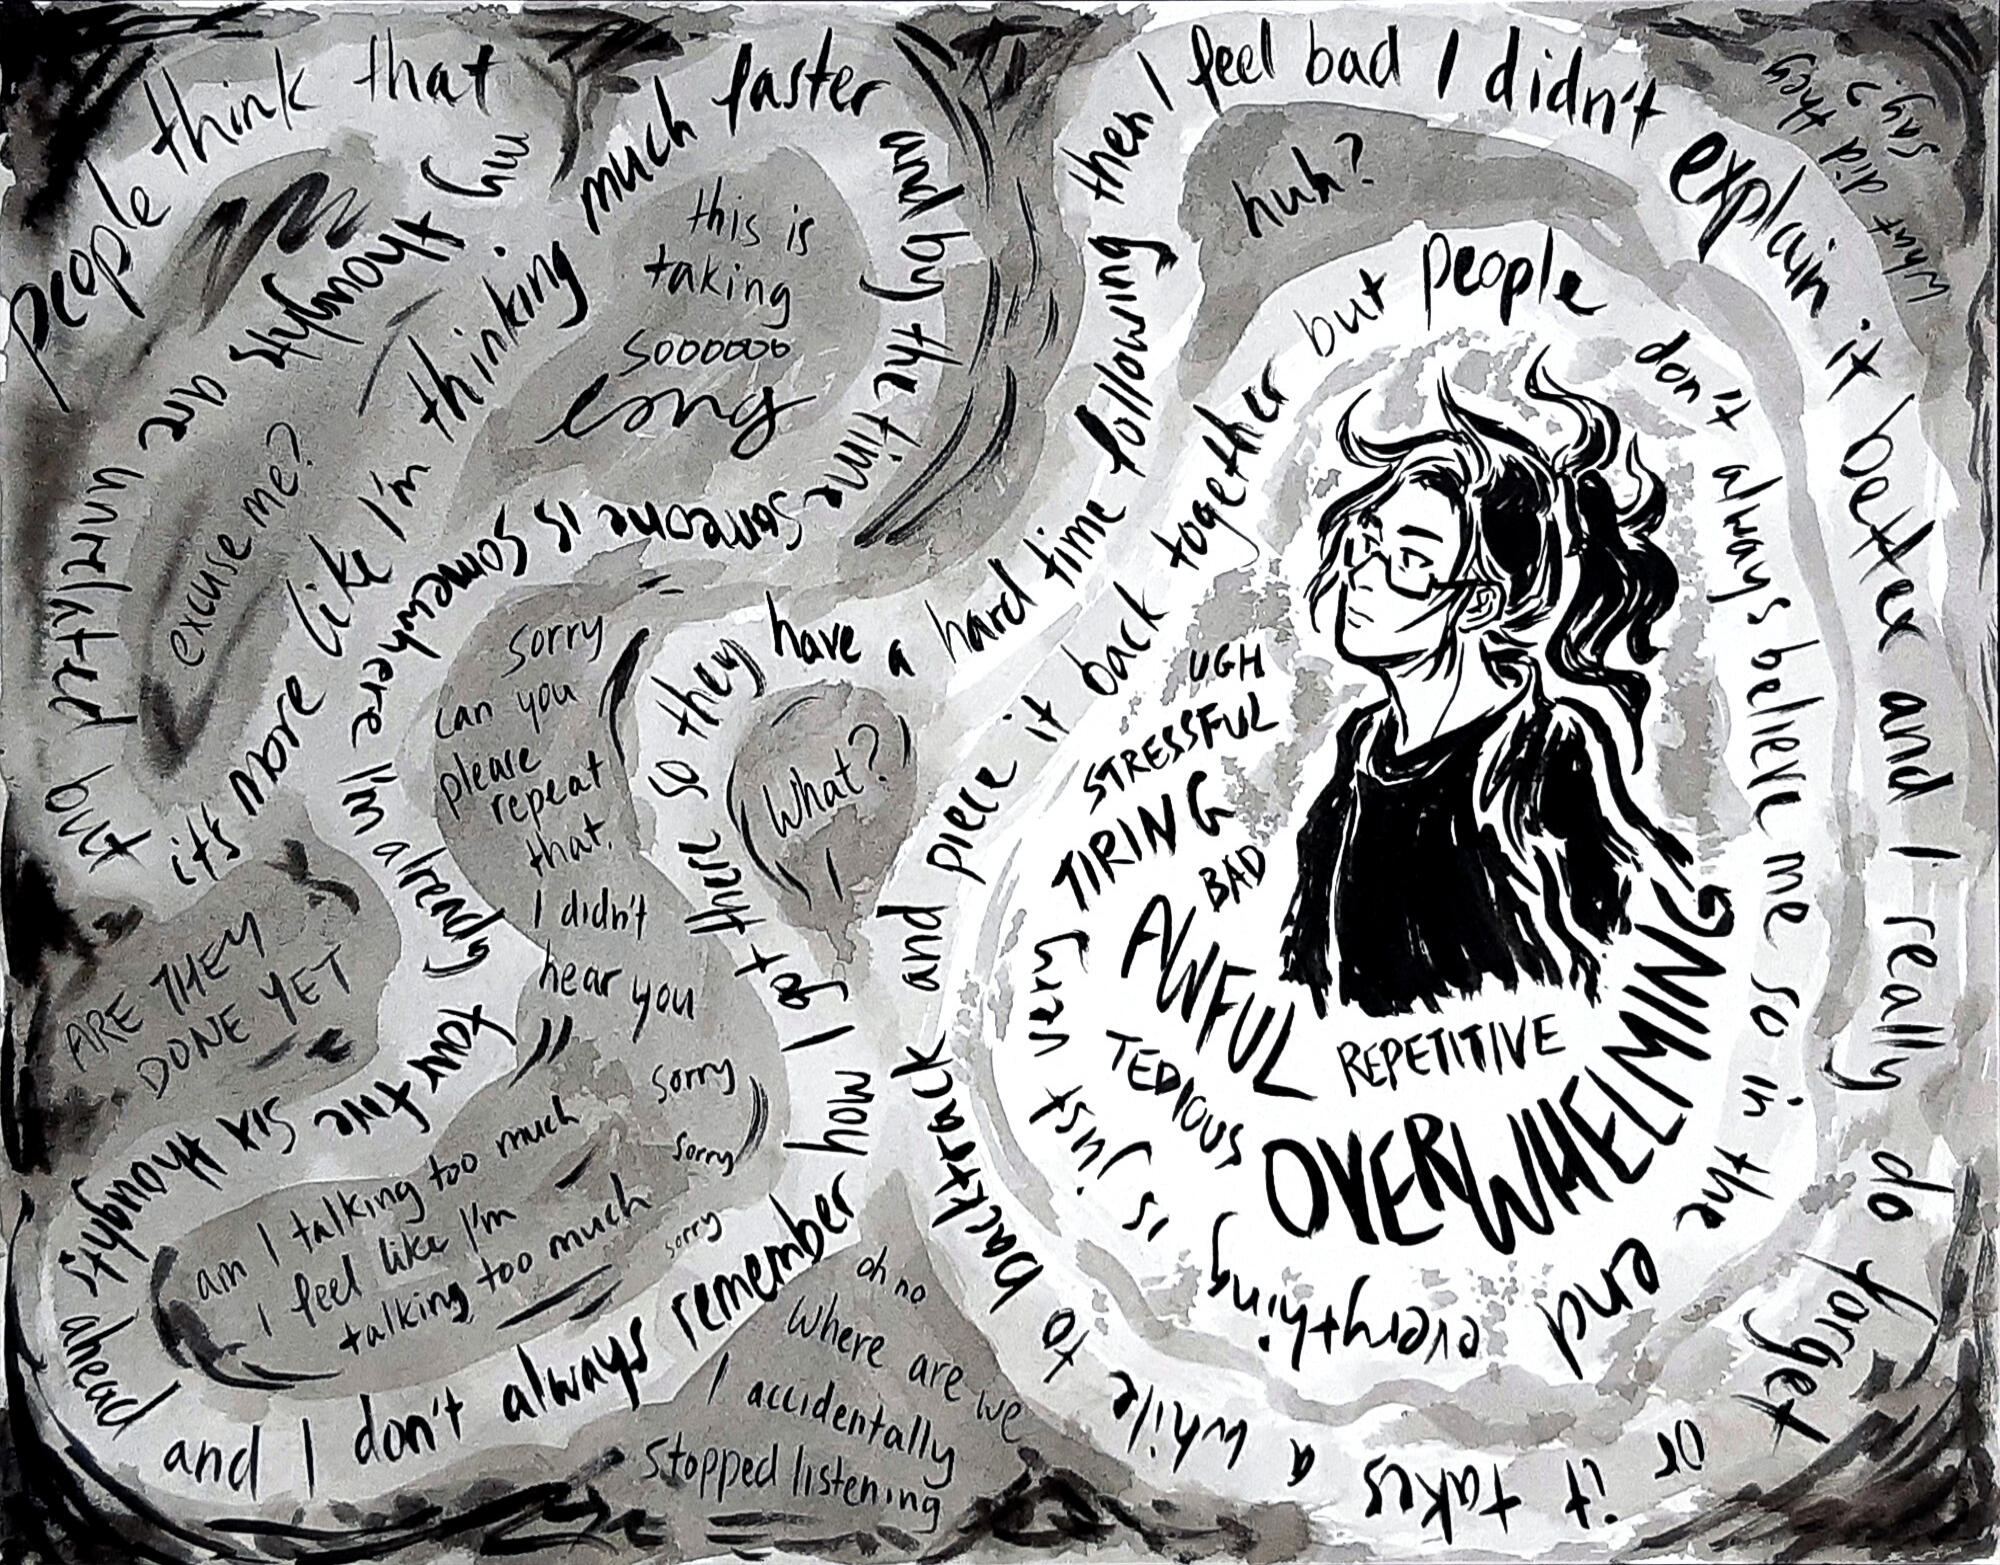 people think that
my thoughts are unrelated but
it's more like I'm thinking much faster
and by the time someone is somewhere I'm already four five six thoughts ahead
and I don't always remember how I got there so they have a hard time following then I feel bad I didn't explain it better and I really do forget
or it takes a while to backtrack and piece it back together but people don't always believe me so in the end everything is just very
TIRING
STRESSFUL
UGH
BAD
AWFUL
TEDIOUS
REPETITIVE
OVERWHELMING
excuse me?
this is
taking
sooooooo
long
ARE THEY
DONE YET
sorry
can you
please
repeat
that.
I didn't
hear you
sorry
sorry
sorry
am I talking too much
I feel like I'm
talking too much
What?
oh no
where are we
I accidentally
stopped listening
huh?
what did they
say?